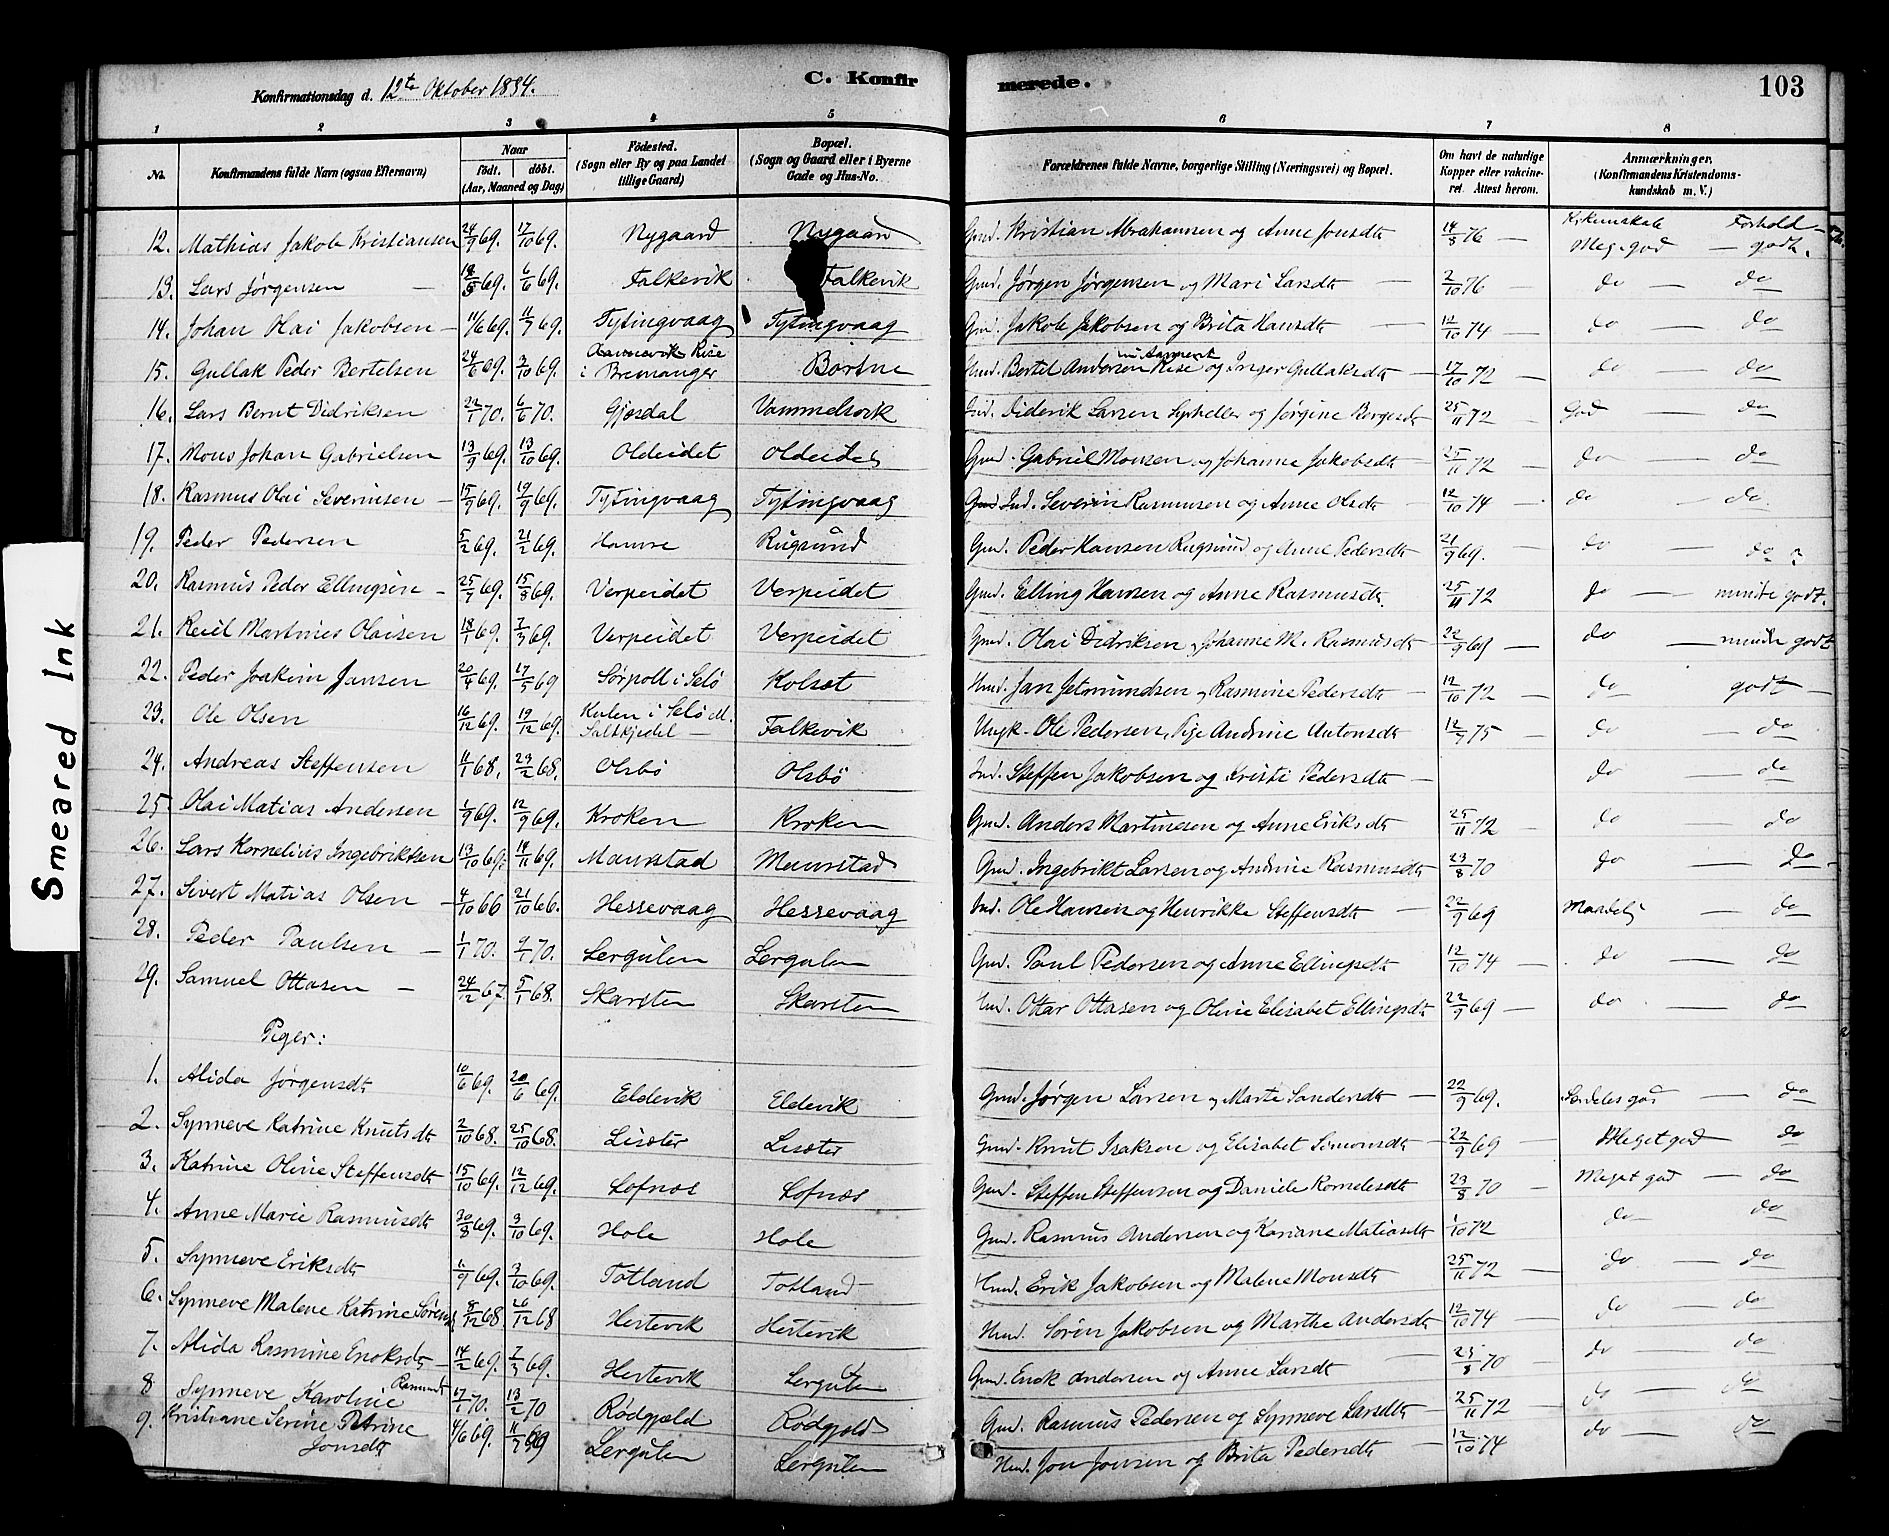 Smeared Ink
Konfirmationsdag d. 12te Oktober 1884.
C. Konfirmerede.
103
1 2 3 4 5 6 7 8
No. Konfirmandens fulde Navn (ogsaa Efternavn) Naar født. døbt. (Aar, Maaned og Dag) Fødested. (Sogn eller By og paa Landet tillige Gaard) Bopæl. (Sogn og Gaard eller i Byerne Gade og Hus-No. Forældrenes fulde Navne, borgerlige Stilling (Næringsvei) og Bopæl. Om havt de naturlige Kopper eller vakcineret. Attest herom. Anmærkninger, (Konfirmandens Kristendomskundskab m. V.)
Forhold
12. Mathias Jakob Kristiansen 24/9 69. 17/10 69. Nygaard Nygaard Gmd. Kristian Abrahamsen og Anne Jonsdt 14/5 76 — Meg. god — godt.
13. Lars Jørgensen — 18/5 69. 6/6 69. Falkevik Falkevik Gmd. Jørgen Jørgensen og Mari Larsdt — 2/10 76 — do — do
14. Johan Olai Jakobsen — 11/6 69. 11/7 69. Tytingvaag Tytingvaag Gmd. Jakob Jakobsen og Brita Hansdt — 12/10 74 — do — do
15. Gullak Peder Bertelsen 24/6 69. 3/10 69. Rise i Bremanger Bortne Hmd. Bertel Andersen Rise og Inger Gullaksdt — 17/10 72 — do — do
16. Lars Bernt Didriksen 22/1 70. 6/6 70. Gjøsdal Vammelsvik Ind. Diderik Larsen og Jørgine Borgesdt 25/11 72 — God — do
17. Mons Johan Gabrielsen 13/9 69. 13/10 69. Oldeidet Oldeidet Gmd. Gabriel Monsen og Johanne Jakobsdt 25/11 72 — do — do
18. Rasmus Olai Severinsen — 15/9 69. 19/9 69. Tytingvaag Tytingvaag Ind. Severin Rasmussen og Anne Olsdt 12/10 74 — do — do
19. Peder Pedersen 5/2 69. 21/2 69. Hamre Rugsund Gmd. Peder Hansen Rugsund og Anne Pedersdt 21/9 69. — do — do ?
20. Rasmus Peder Ellingsen — 25/7 69. 15/8 69. Verpeidet Verpeidet Gmd. Elling Hansen og Anne Rasmusdt 25/11 72 do — mindre godt.
21. Martines Olaisen 18/1 69. 7/3 69. Verpeidet Verpeidet Gmd. Olai Didriksen, Johanne M. Rasmusdt 22/9 69 — do — mindre godt
22. Peder Joakim Jansen 20/4 69. 17/5 69 Sørpoll i Selø Kolset Hmd. Jan Jetmundsen og Rasmine Pedersdt — 12/10 72 — do — godt —
23. Ole Olsen 16/12 69. 19/12 69. i Selø M. Saltskjedel — Falkevik Ungk. Ole Pedersen, Pige Andrine Antonsdt 12/7 75 — do — do
24. Andreas Steffensen 11/1 68. 23/2 68. Olsbø Olsbø Ind. Steffen Jakobsen og Kristi Pedersdt — do — do
25. Olai Matias Andersen 1/9 69. 12/9 69. Kroken Kroken Gmd. Anders Martinesen og Anne Eriksdt 25/11 72 — do — do
26. Lars Kornelius Ingebriktsen 13/10 69. 14/11 69. Maurstad Maurstad Gmd. Ingebrikt Larsen og Andrine Rasmusdt 23/8 70 do — do
27. Sivert Matias Olsen — 4/10 66 21/10 66. Hessevaag Hessevaag Ind. Ole Hansen og Henrikke Steffensdt — 22/9 69 Maadelig — do
28. Peder Paulsen — 1/1 70. 9/1 70. Lergulen Lergulen Gmd. Paul Pedersen og Anne Ellingsdt 12/10 74 — do — do
29. Samuel Ottasen — 24/12 67. 5/1 68. Skarsten Skarsten Ind. Ottar Ottasen og Oline Elisabet Ellingsdt 22/9 69 — do — do
Piger:
1. Alida Jørgensdt 10/6 69. 20/6 69. Eldevik Eldevik Gmd. Jørgen Larsen og Marte Sandersdt — 22/9 69. Særdeles god — do
2. Synneve Katrine Knutsdt 2/10 68. 25/10 68. Lisæter Lisæter Gmd. Knut Isaksen og Elisabet Simonsdt — 22/9 69 — Meget god — do
3. Katrine Oline Steffensdt 15/10 69. 12/12 69. Lofnes Lofnes Gmd. Steffen Steffensen og Daniele Kornelesdt 23/8 70 — Meget god — do
4. Anne Marie Rasmusdt 30/8 69. 3/10 69. Hole Hole Gmd. Rasmus Andersen og Kariane Matiasdt 1/10 72 do — do
5. Synneve Eriksdt 1/9 69. 3/10 69. Totland Totland Hmd. Erik Jakobsen og Malene Monsdt 25/11 72 — do — do
6. Synneve Malene Katrine Sørensd 8/12 68. 26/12 68 Hestevik Hestevik Hmd. Søren Jakobsen og Marthe Andersdt 12/10 74 — do — do
7. Alida Rasmine Enoksdt — 14/2 69. 7/3 69. Hestevik Lergulen Gmd. Enok Andersen og Anne Larsdt — 23/8 70 do — do
8 Synneve Karoline Rasmusdt 17/1 70. 13/2 70 Rødgjeld Rødgjeld Gmd. Rasmus Pedersen og Synneve Larsdt — 25/11 72 do — do
9. Kristiane Serine Petrine Jonsdt 4/6 69. 11/7 69 Lergulen Lergulen Hmd. Jon Jonsen og Brita Pedersdt — 12/10 74 do — do